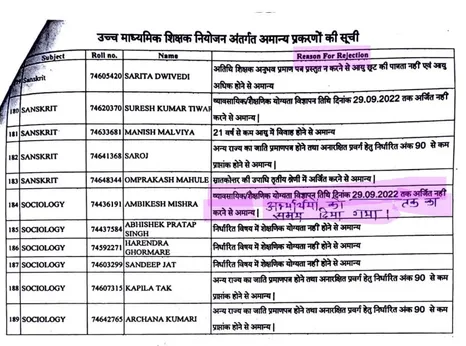 उच्च माध्यमिक शिक्षक नियोजन अंतर्गत अमान्य प्रकरणों की सूची
Subject Roll no. Name Reason For Rejection
Sanskrit 74605420 SARITA DWIVEDI अतिथि शिक्षक अनुभव प्रमाण पत्र प्रस्तुत न करने से आयु छूट की पात्रता नहीं एवं आयु
अधिक होने से अमान्य
180 SANSKRIT 74620370 SURESH KUMAR TIWAR व्यावसायिक/शैक्षणिक योग्यता विज्ञापन तिथि दिनांक 29.09.2022 तक अर्जित नहीं
करने से अमान्य |
181 SANSKRIT 74633681 MANISH MALVIYA 21 वर्ष से कम आयु में विवाह होने से अमान्य
182 SANSKRIT 74641368 SAROJ अन्य राज्य का जाति प्रमाणपत्र होने तथा अनारक्षित प्रवर्ग हेतु निर्धारित अंक 90 से कम
प्राप्तांक होने से अमान्य |
183 SANSKRIT 74648344 OMPRAKASH MAHULE स्नातकोत्तर की उपाधि तृतीय श्रेणी में अर्जित करने से अमान्य |
184 SOCIOLOGY 74436191 AMBIKESH MISHRA व्यावसायिक/शैक्षणिक योग्यता विज्ञापन तिथि दिनांक 29.09.2022 तक अर्जित नहीं
करने से अमान्य | तक का
समय दिया गया।
185 SOCIOLOGY 74437584 ABHISHEK PRATAP SINGH निर्धारित विषय में शैक्षणिक योग्यता नहीं होने से अमान्य
186 SOCIOLOGY 74592271 HARENDRA GHORMARE निर्धारित विषय में शैक्षणिक योग्यता नहीं होने से अमान्य
187 SOCIOLOGY 74603299 SANDEEP JAT निर्धारित विषय में शैक्षणिक योग्यता नहीं होने से अमान्य
188 SOCIOLOGY 74607315 KAPILA TAK अन्य राज्य का जाति प्रमाणपत्र होने तथा अनारक्षित प्रवर्ग हेतु निर्धारित अंक 90 से कम
प्राप्तांक होने से अमान्य |
189 SOCIOLOGY 74642765 ARCHANA KUMARI अन्य राज्य का जाति प्रमाणपत्र होने तथा अनारक्षित प्रवर्ग हेतु निर्धारित अंक 90 से कम
प्राप्तांक होने से अमान्य |